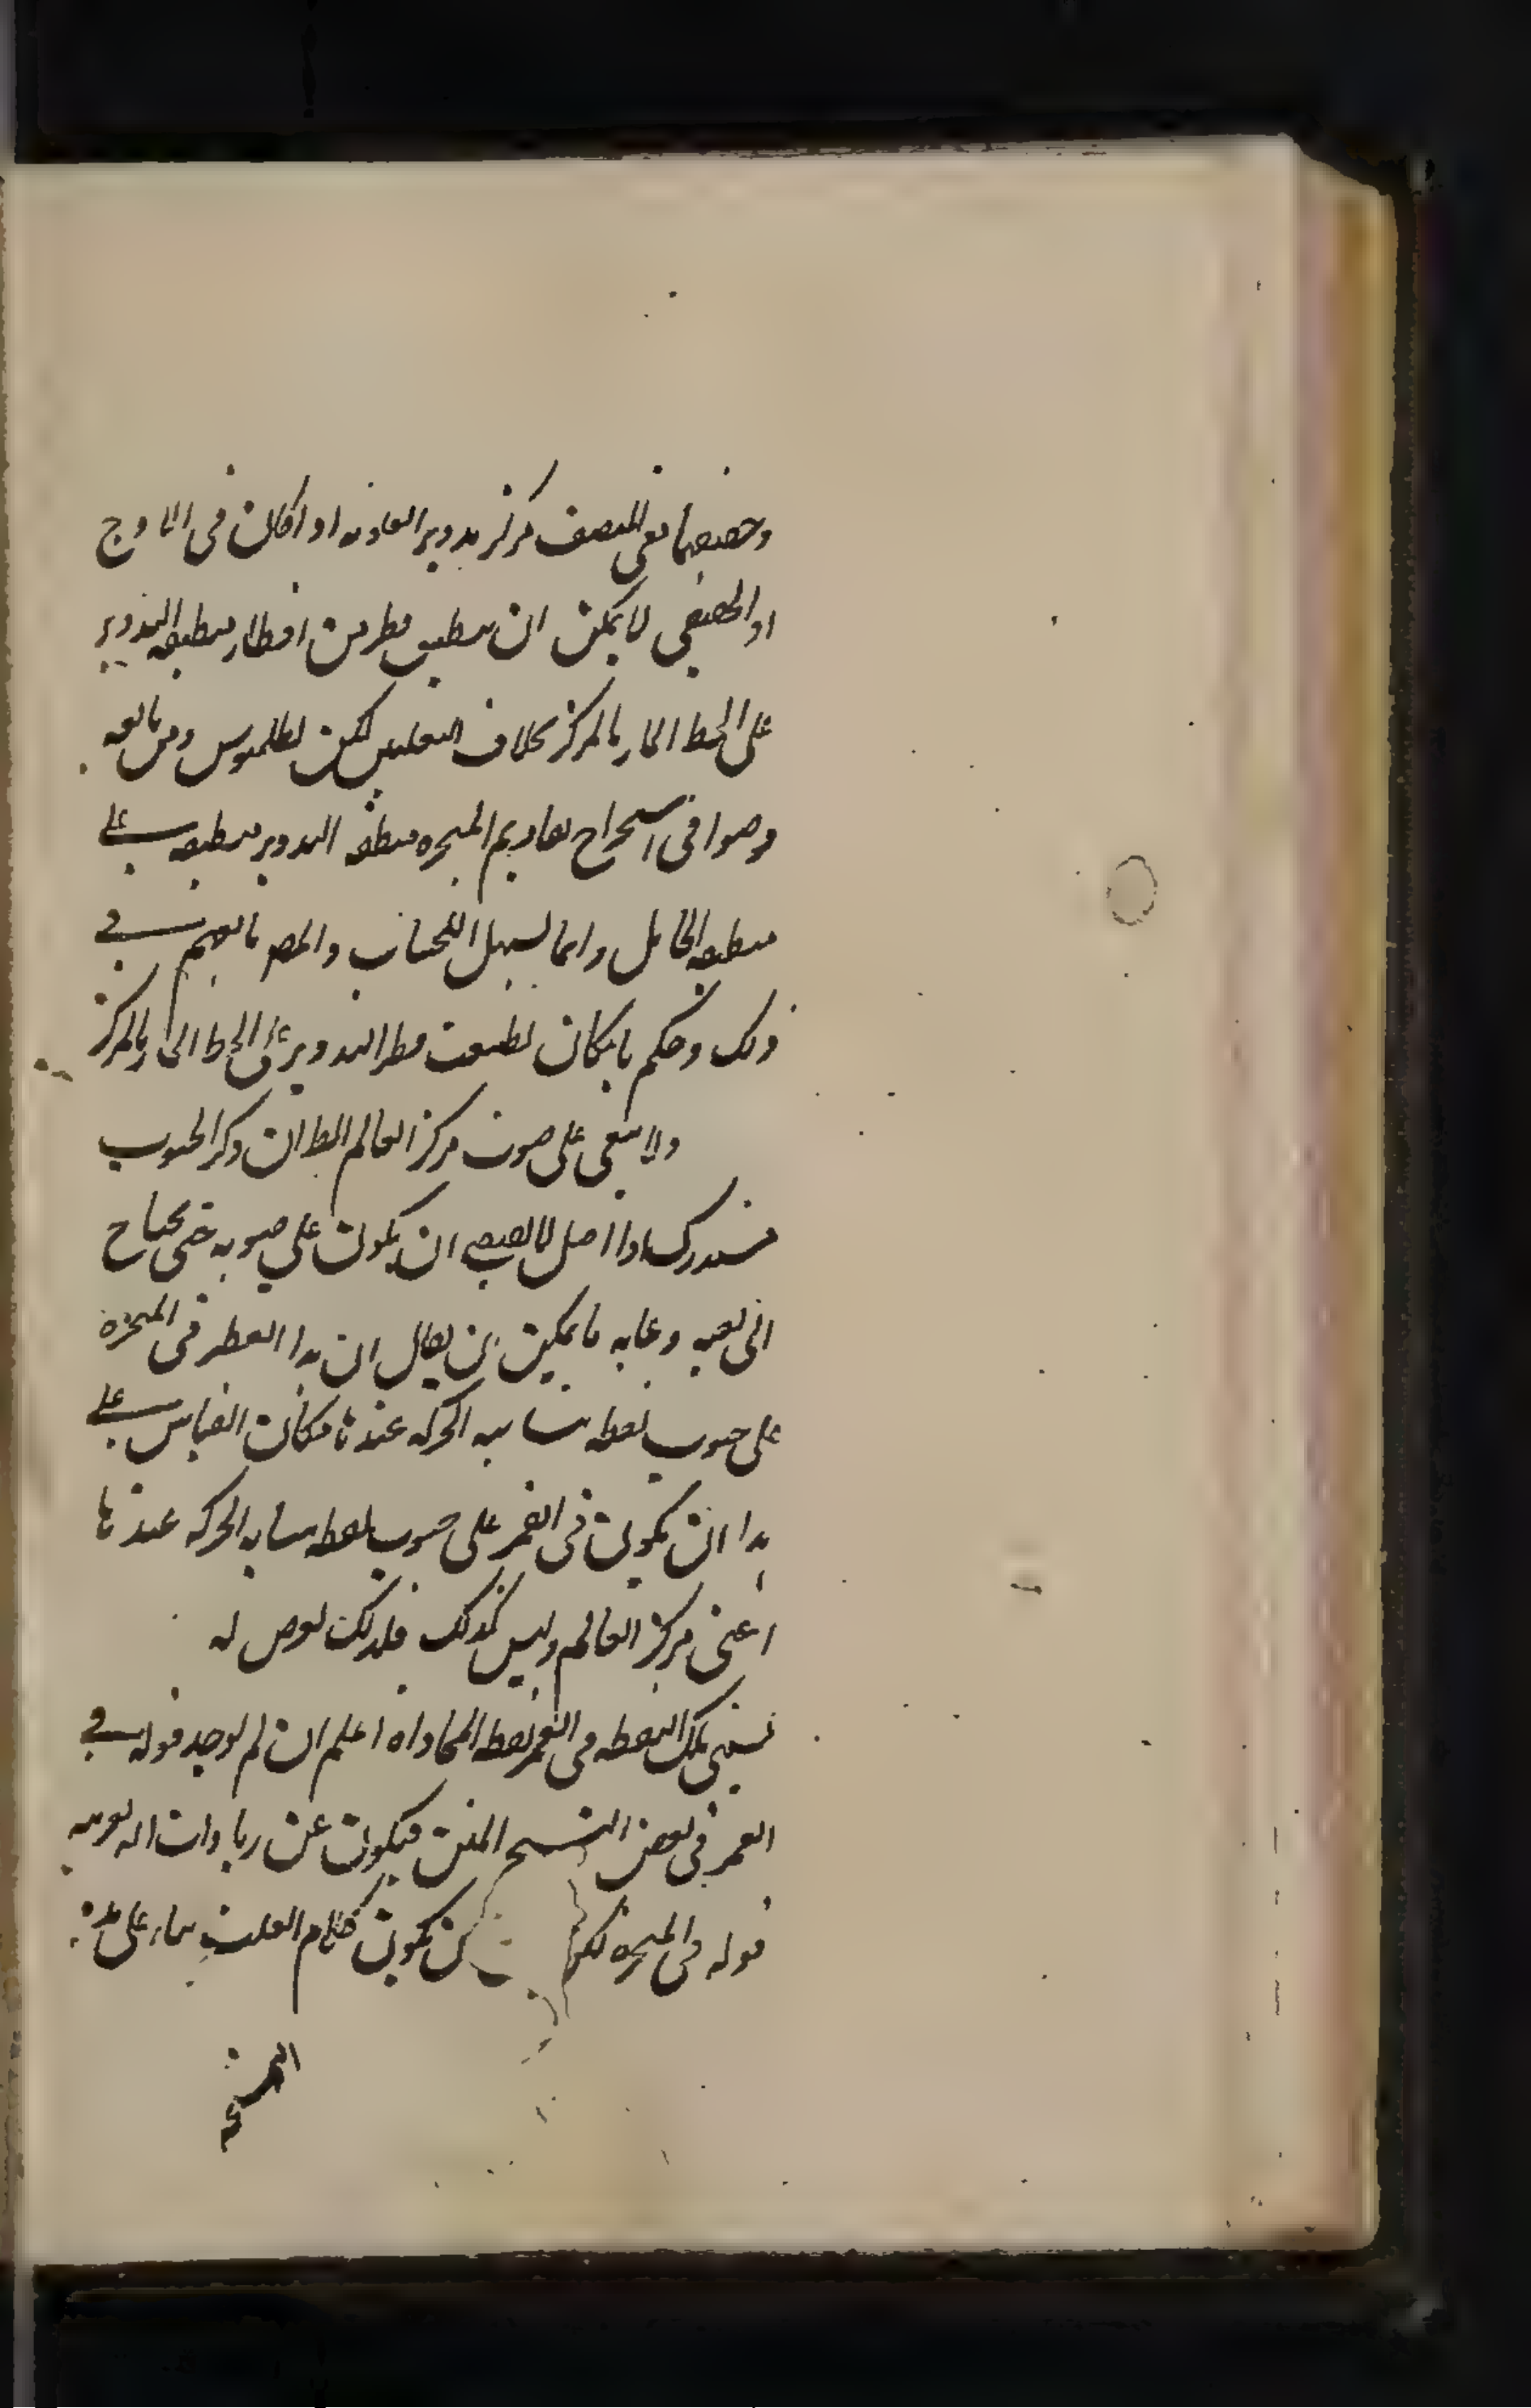 وحضيضها ففي المنتصف مركز تدوير العلوية اذا كان في الاوج
او الحضيض لا يمكن ان ينطبق قطر من اقطار منطقة التدوير
على الخط المار بالمركز بخلاف السفليين لكن بطلميوس ومن تابعه
فرضوا في استخراج تقاويم المتحيرة منطقة التدوير منطبقة على
منطقة الحامل وانما تسهيلا للحساب والمص تابعهم في
ذلك وحكم بامكان تطبيق قطر التدوير على الخط المار بالمركز
ولا يبقى على صوب مركز العالم الظ ان ذكر الصوب
مستدرك اذ الاصل لا يقتضي ان يكون على صوبه حتى يحتاج
الى نفيه وغاية ما يمكن ان يقال ان هذا القطر في المتحيرة
على صوب نقطة تتشابه الحركة عندها فكان القياس على
هذا ان يكون في القمر على صوب نقطة تشابه الحركة عندها
اعني مركز العالم وليس كذلك فلذلك تعرض له
تسمى تلك النقطة في القمر نقطة المحاذاة اعلم ان لم يوجد قوله في
القمر في بعض النسخ المتن فيكون عن زيادات
قوله في المتحيرة يكون كلام بناء على هذه